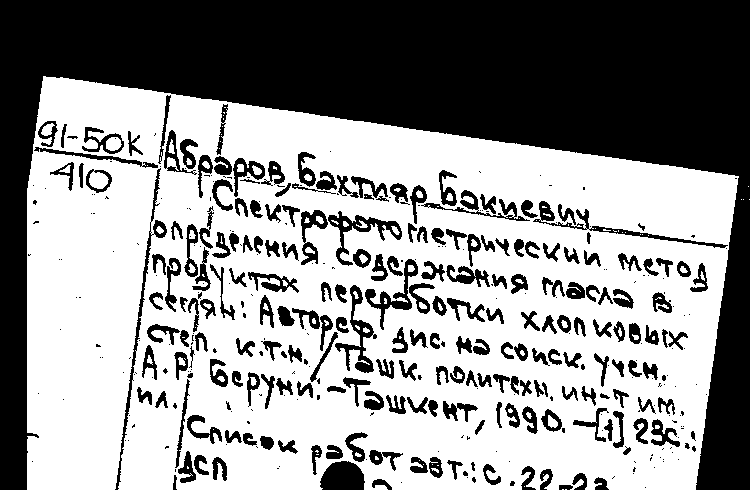 91-50к
410
Абраров, Бахтияр Бакиевич
Спектрофотометрический метод
определения содержания масла в
продуктах переработки хлопковых
семян: Автореф. дис. на соиск. учен.
степ. к.т.н. / Ташк. политехн. ин-т им.
А.Р. Беруни. - Ташкент, 1990. - [1], 23с.:
ил.
Список работ авт.: с. 22-23
ДСП